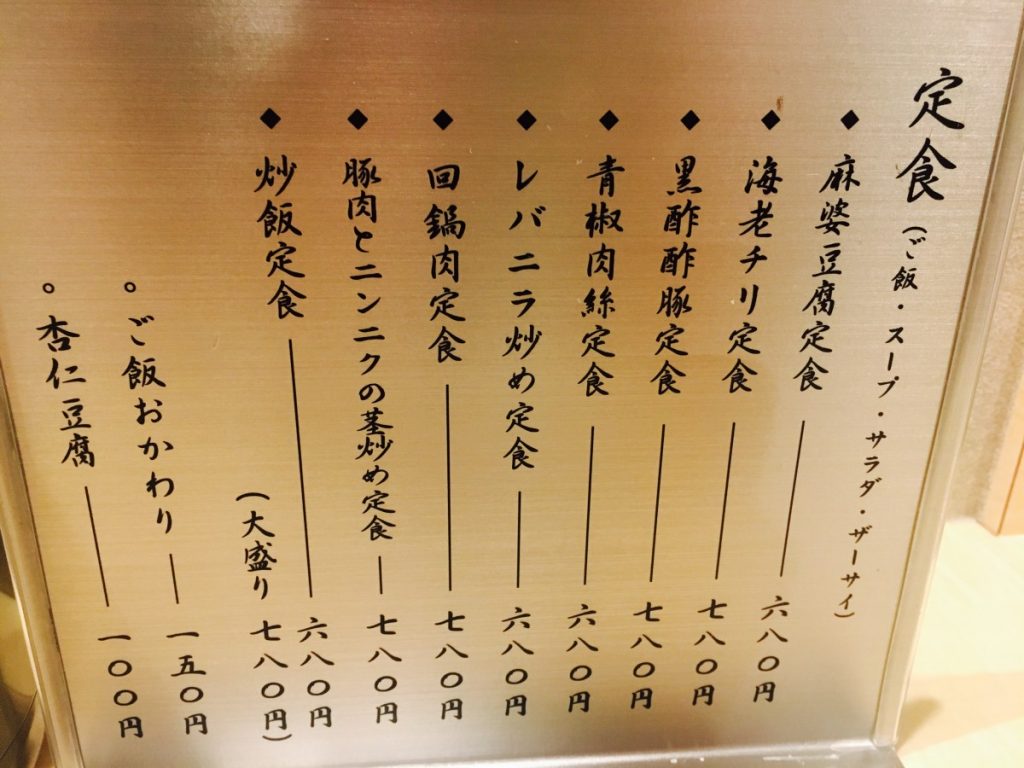 定食（ご飯・スープ・サラダ・ザーサイ）
◆ 麻婆豆腐定食 ― 六八〇円
◆ 海老チリ定食 ― 七八〇円
◆ 黒酢酢豚定食 ― 七八〇円
◆ 青椒肉絲定食 ― 六八〇円
◆ レバニラ炒め定食 ― 六八〇円
◆ 回鍋肉定食 ― 七八〇円
◆ 豚肉とニンニクの茎炒め定食 ― 七八〇円
◆ 炒飯定食 ― 六八〇円
（大盛り 七八〇円）
。ご飯おかわり ― 一五〇円
。杏仁豆腐 ― 一〇〇円